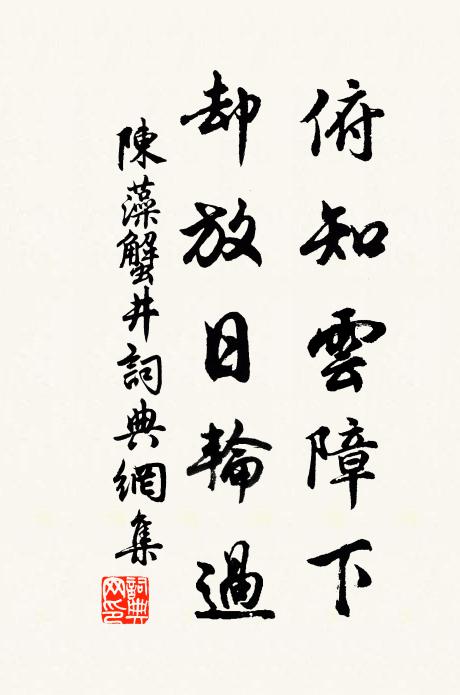 俯知雲障下
却放日輪過
陳藻蟹井詞典網集
詞典網印